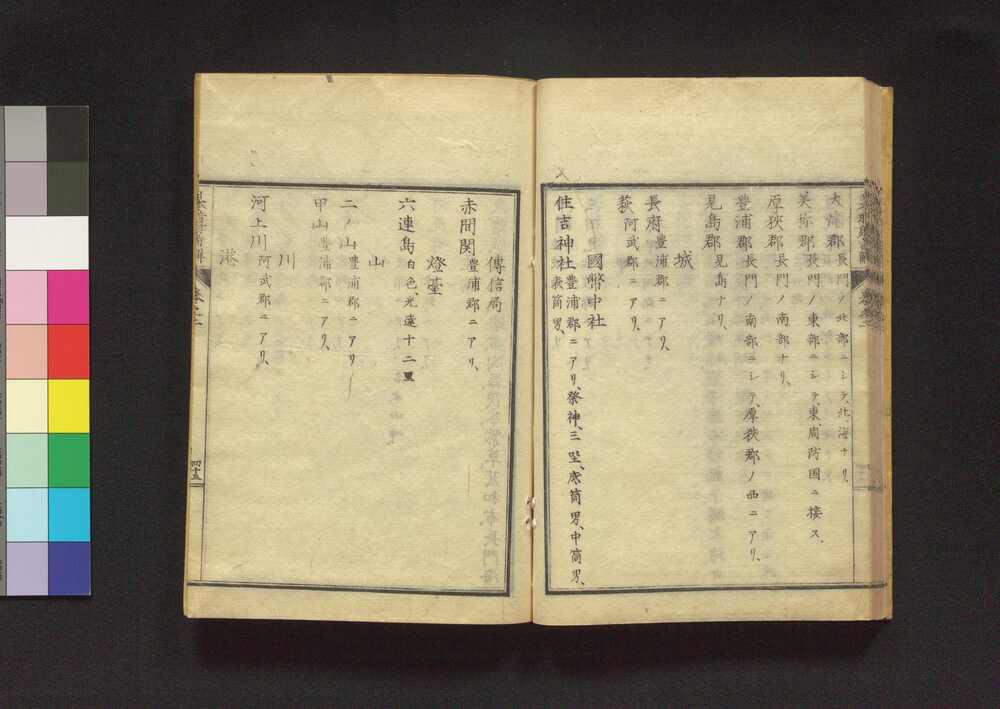 大津郡 長門ノ北部ニシテ、北海ナリ、
美祢郡 長門ノ東部ニシテ、東、周防國ニ接ス、
厚狹郡 長門ノ南部ナリ、
豊浦郡 長門ノ南部ニシテ、厚狹郡ノ西ニアリ、
見島郡 見島ナリ、
城
長府 豊浦郡ニアリ、
萩 河武郡ニアリ、
國幣中社
住吉神社 豊浦郡ニアリ、祭神、三坐、底筒男、中筒男、
表筒男、
傳信局
赤間関 豊浦郡ニアリ、
燈臺
六連島 白色、光遠十二里
山
二ノ山 豊浦郡ニアリ
甲山 豊浦郡ニアリ、
川
河上川 河武郡ニアリ、
港
四十五